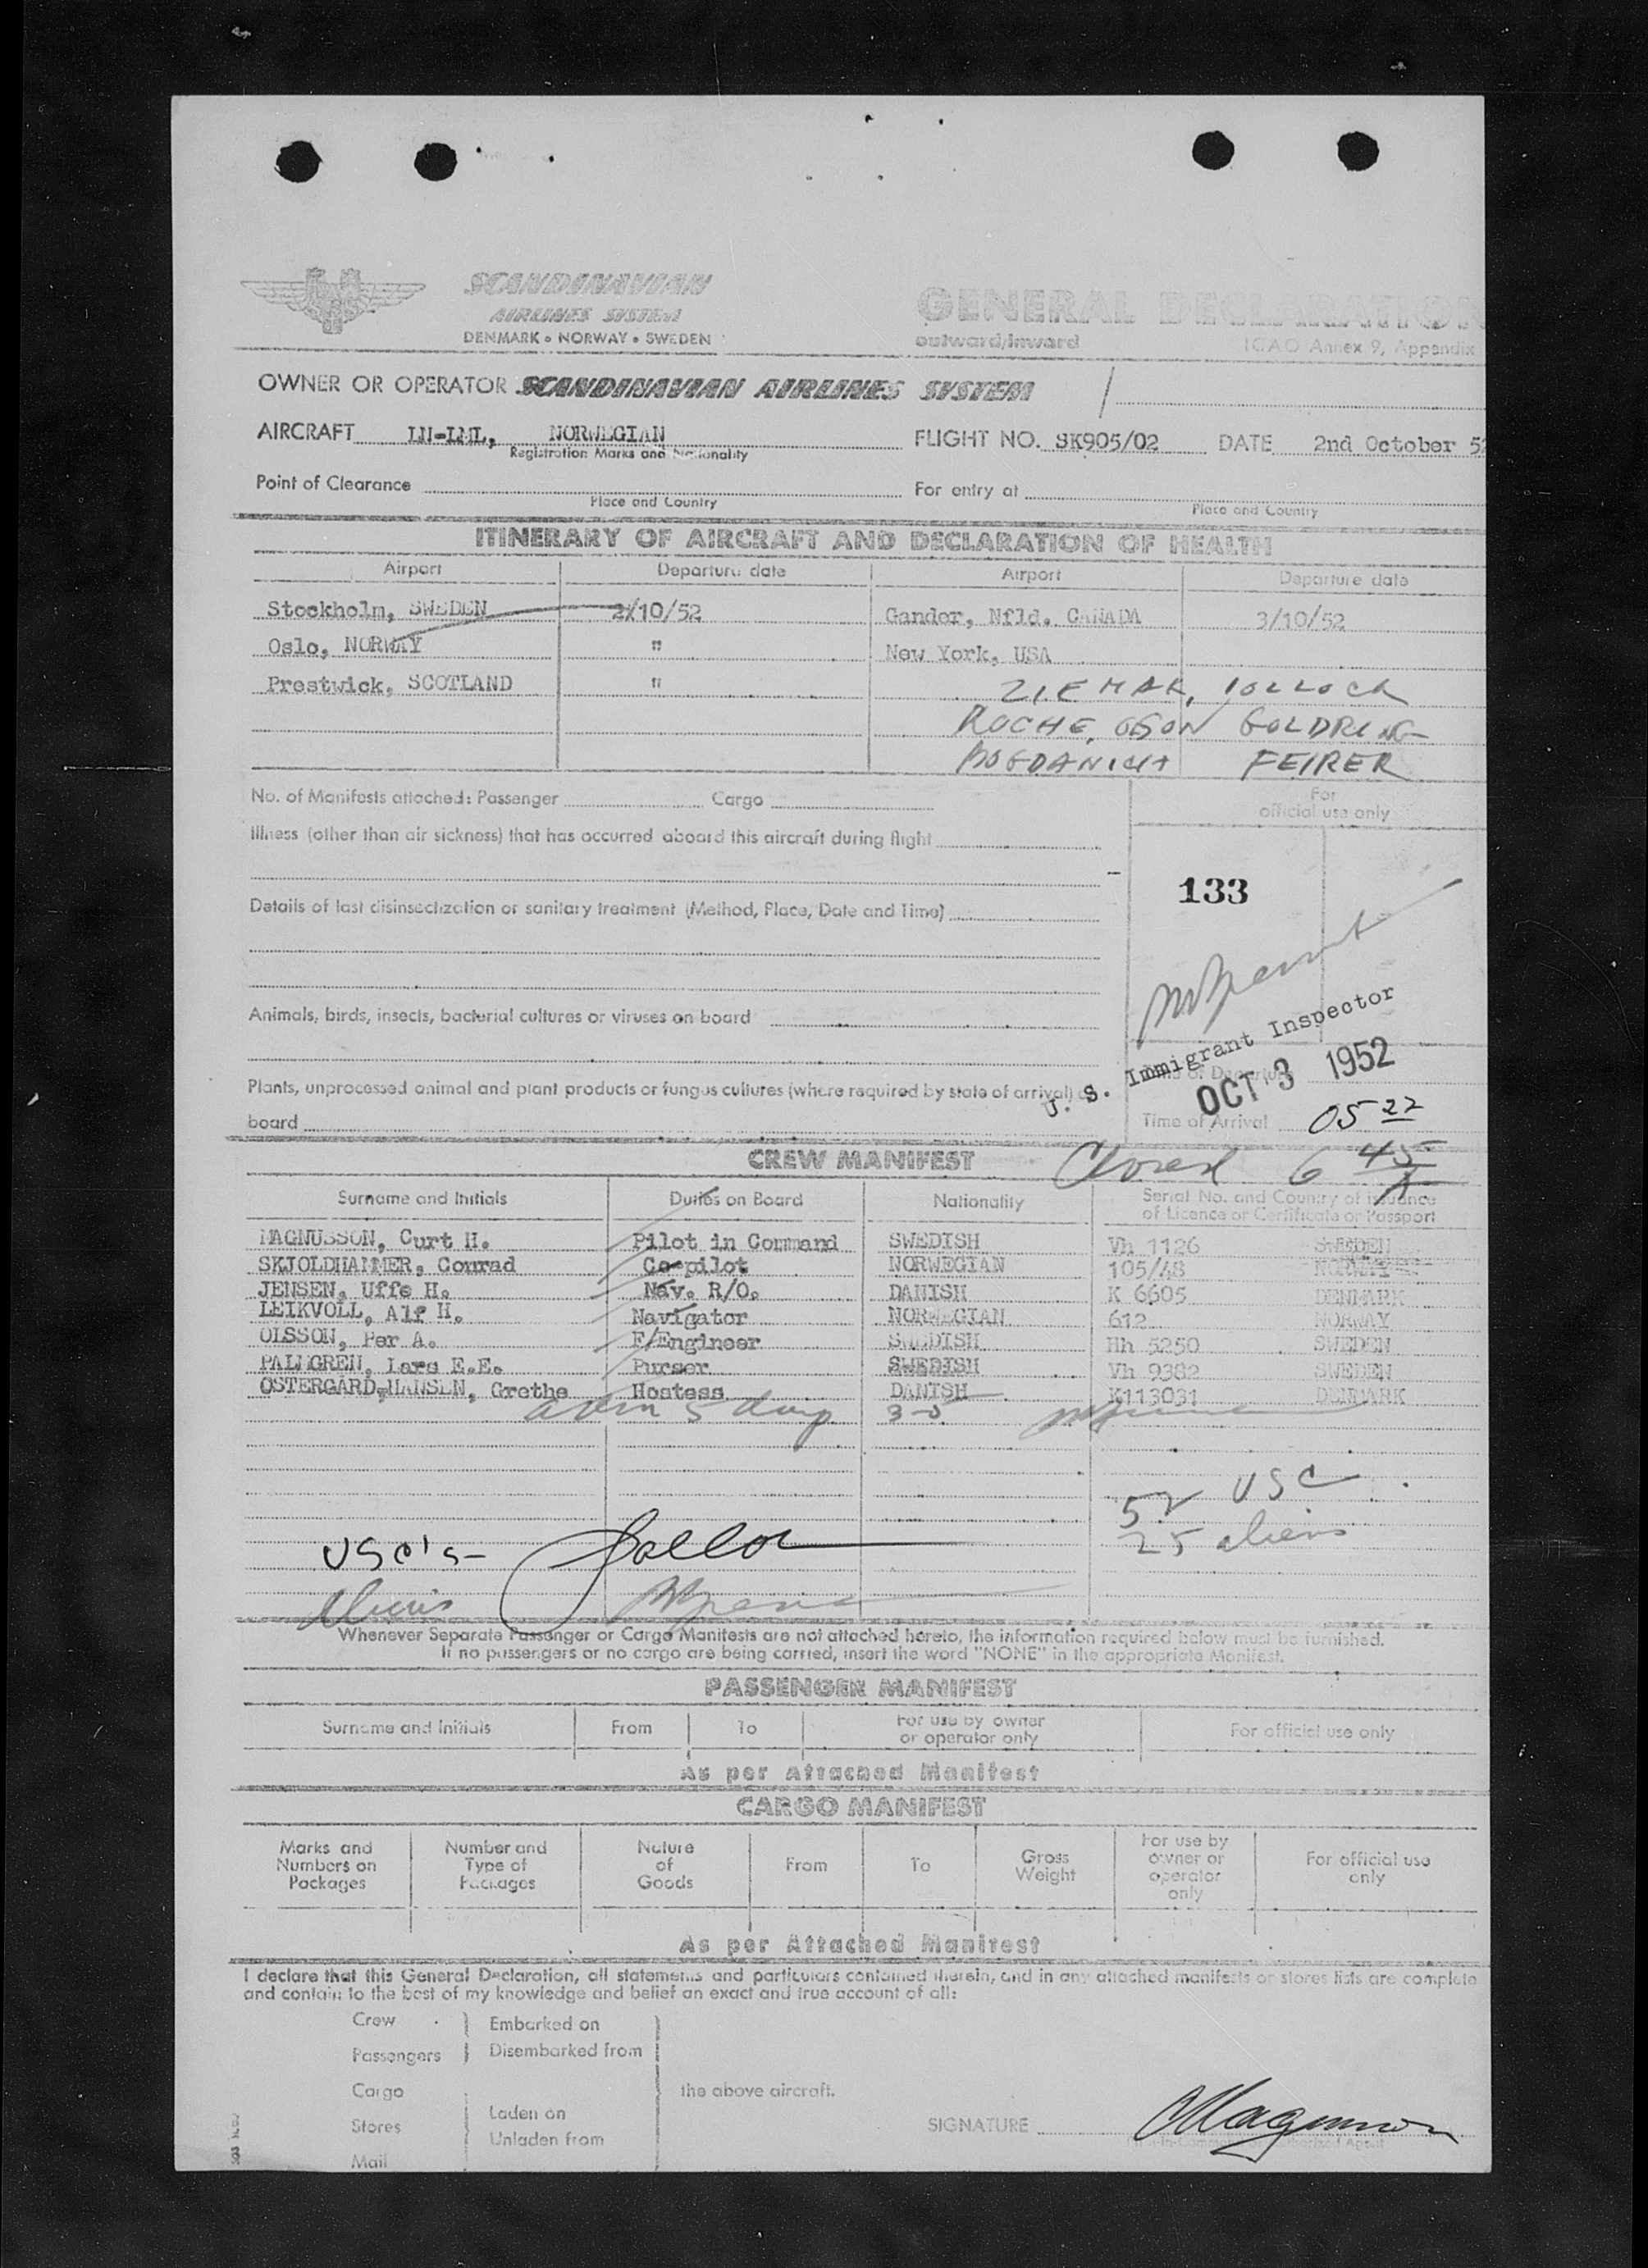 SCANDINAVIAN
AIRLINES SYSTEM
DENMARK • NORWAY • SWEDEN
GENERAL DECLARATION
outward/inward
ICAO Annex 9, Appendix
OWNER OR OPERATOR SCANDINAVIAN AIRLINES SYSTEM
AIRCRAFT LN-LML, NORWEGIAN
Registration Marks and Nationality
FLIGHT NO. SK905/02 DATE 2nd October 52
Point of Clearance
Place and Country
For entry at
Place and Country
ITINERARY OF AIRCRAFT AND DECLARATION OF HEALTH
Airport Departure date Airport Departure date
Stockholm, SWEDEN 2/10/52 Gander, Nfld. CANADA 3/10/52
Oslo, NORWAY " New York, USA
Prestwick, SCOTLAND "
ZIEMAK, POLLOCK
ROCHE, OSON GOLDRING
BOGDANICH FEIRER
No. of Manifests attached: Passenger Cargo
For
official use only
Illness (other than air sickness) that has occurred aboard this aircraft during flight
133
Details of last disinsectization or sanitary treatment (Method, Place, Date and Time)
Animals, birds, insects, bacterial cultures or viruses on board
U. S. Immigrant Inspector
OCT 3 1952
Plants, unprocessed animal and plant products or fungus cultures (where required by state of arrival)
board
Time of Arrival 05 22
CREW MANIFEST
Closed 6 45 A
Surname and Initials Duties on Board Nationality Serial No. and Country of issuance
of Licence or Certificate or Passport
MAGNUSSON, Curt H. Pilot in Command SWEDISH Vh 1126 SWEDEN
SKJOLDHAMMER, Conrad Co-pilot NORWEGIAN 105/48 NORWAY
JENSEN, Uffe H. Nav. R/O. DANISH K 6605 DENMARK
LEIKVOLL, Alf H. Navigator NORWEGIAN 612 NORWAY
OLSSON, Per A. F/Engineer SWEDISH Hh 5250 SWEDEN
PALMGREN, Lars E.E. Purser SWEDISH Vh 9382 SWEDEN
OSTERGARD-HANSEN, Grethe Hostess DANISH K113031 DENMARK
adm 5 days 3-5
52 USC
25 aliens
USC's-
Aliens
Whenever Separate Passenger or Cargo Manifests are not attached hereto, the information required below must be furnished.
If no passengers or no cargo are being carried, insert the word "NONE" in the appropriate Manifest.
PASSENGER MANIFEST
Surname and Initials From To For use by owner
or operator only For official use only
As per Attached Manifest
CARGO MANIFEST
Marks and
Numbers on
Packages
Number and
Type of
Packages
Nature
of
Goods
From
To
Gross
Weight
For use by
owner or
operator
only
For official use
only
As per Attached Manifest
I declare that this General Declaration, all statements and particulars contained therein, and in any attached manifests or stores lists are complete
and contain to the best of my knowledge and belief an exact and true account of all:
Crew Embarked on
Passengers Disembarked from
Cargo the above aircraft.
Stores Laden on
Unladen from
Mail
SIGNATURE Magnusson